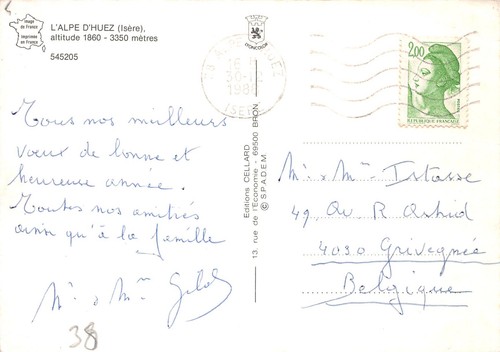 Image
de France
Imprimée
en France
L'ALPE D'HUEZ (Isère),
altitude 1860 - 3350 mètres
545205
Tous nos meilleurs
vœux de bonne et
heureuse année.
Toutes nos amitiés
ainsi qu'à la famille
Mr & Mme
38
Editions CELLARD
13, rue de l'Economie - 69500 BRON.
© S.P.A.D.E.M.
HUEZ
ISÈRE
2,00
REPUBLIQUE FRANÇAISE
Mr & Mme Istasse
49 Av R Astrid
4030 Grivegnée
Belgique